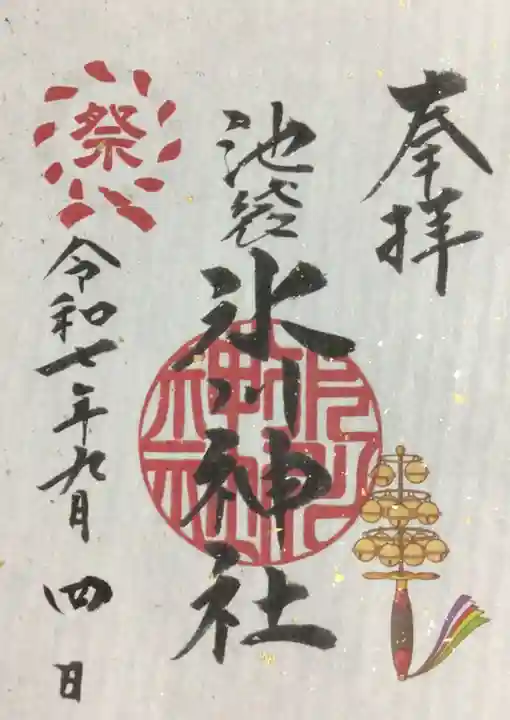 奉拝
池袋
氷川神社
祭
令和七年九月四日